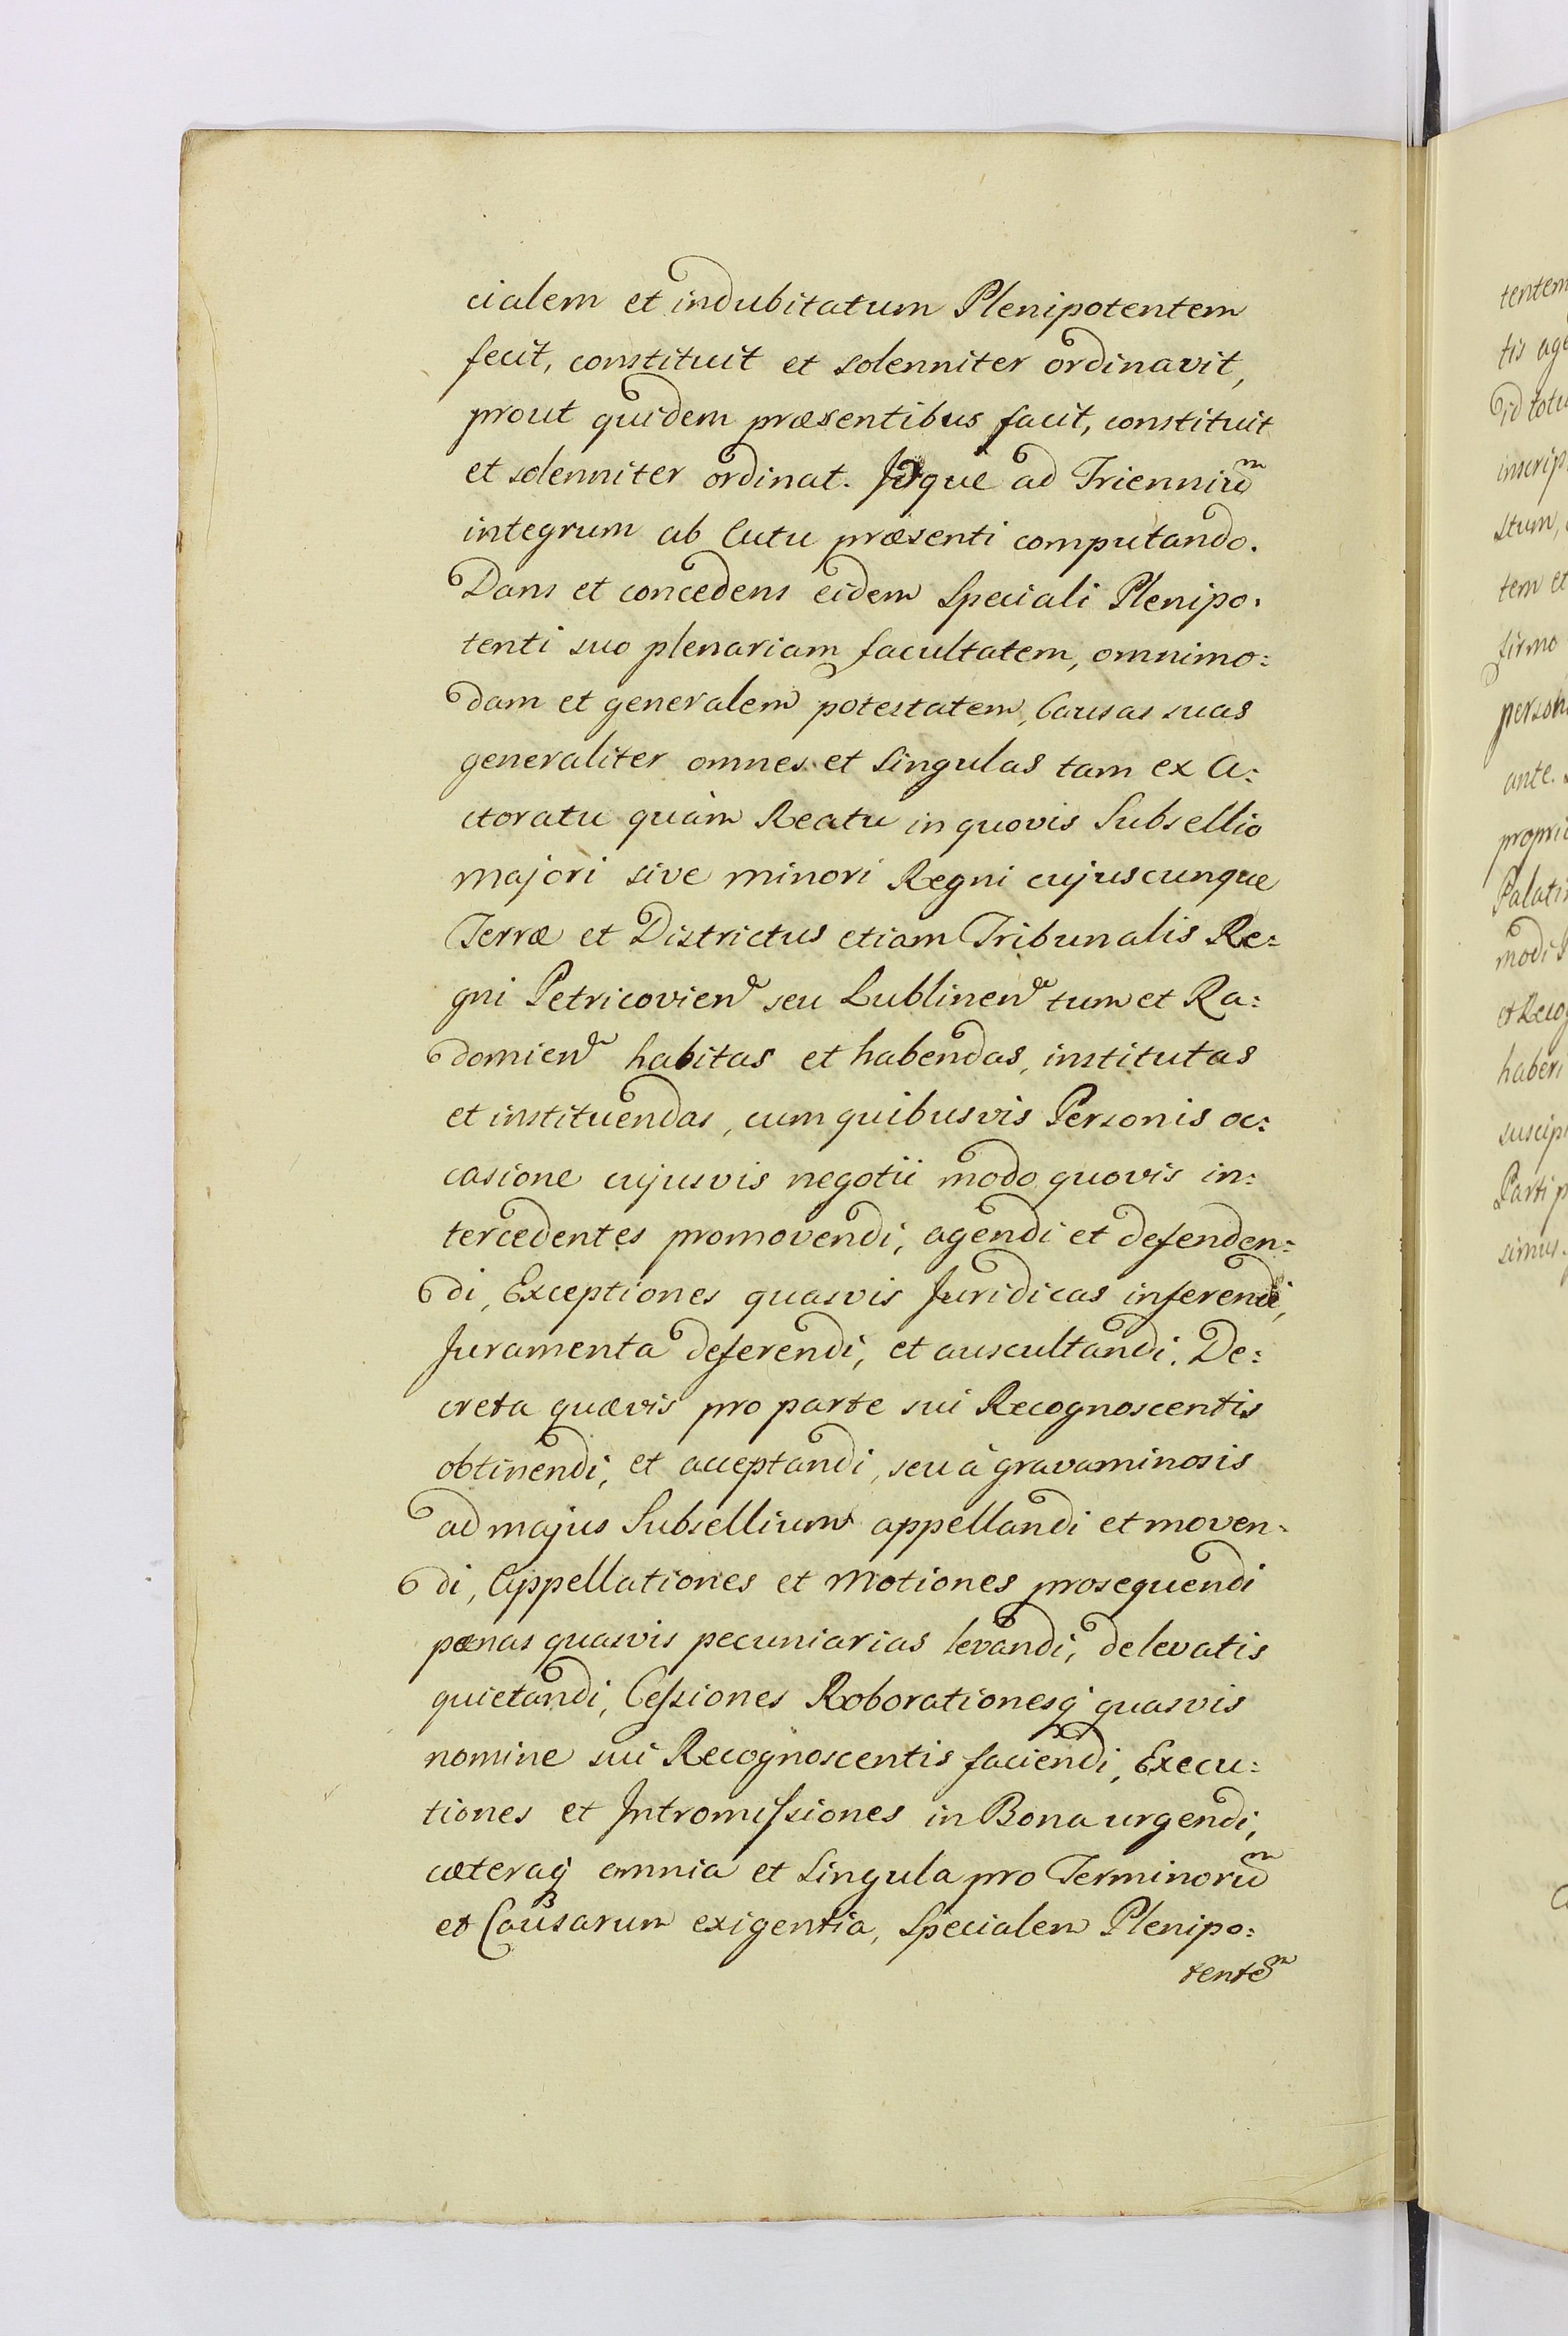 cialem et indubitatum Plenipotentem
fecit, constituit et solenniter ordinavit,
prout quidem præsentibus facit, constituit
et solenniter ordinat. Idque ad Trienniũm
integrum ab Actu præsenti computando.
Dans et concedens eidem Speciali Plenipo:
tenti suo plenariam facultatem, omnimo:
dam et generalem potestatem, Causas suas
generaliter omnes et singulas tam ex A:
ctoratu quàm Reatu in quovis Subsellio
majori sive minori Regni cujuscunque
Terræ et Districtus etiam Tribunalis Re:
gni Petricovien seu Lublinen tum et Ra:
domien habitas et habendas, institutas
et instituendas, cum quibusvis Personis oc:
casione cujusvis negotii modo quovis in:
tercedentes promovendi, agendi et defenden:
di, Exceptiones quasvis Juridicas inferendi,
Juramenta deferendi, et auscultandi. De:
creta quævis pro parte sui Recognoscentis
obtinendi, et acceptandi, seu à gravaminosis
ad majus Subsellium appellandi et moven:
di, Appellationes et Motiones prosequendi
pœnas quasvis pecuniarias levandi, de levatis
quietandi, Cessiones Roborationesq́ quasvis
nomine sui Recognoscentis faciendi, Execu:
tiones et Intromissiones in Bona urgendi,
cæteraq́ omnia et singula pro Terminorũm
et Causarum exigentia, Specialem Plenipo:
tentẽm
tentem
tis age
id totu
inscrip
stum,
tem et
firmo
person
ante.
propri
Palati
modi
et Recog
haberi
suscipi
Parti p
simus.